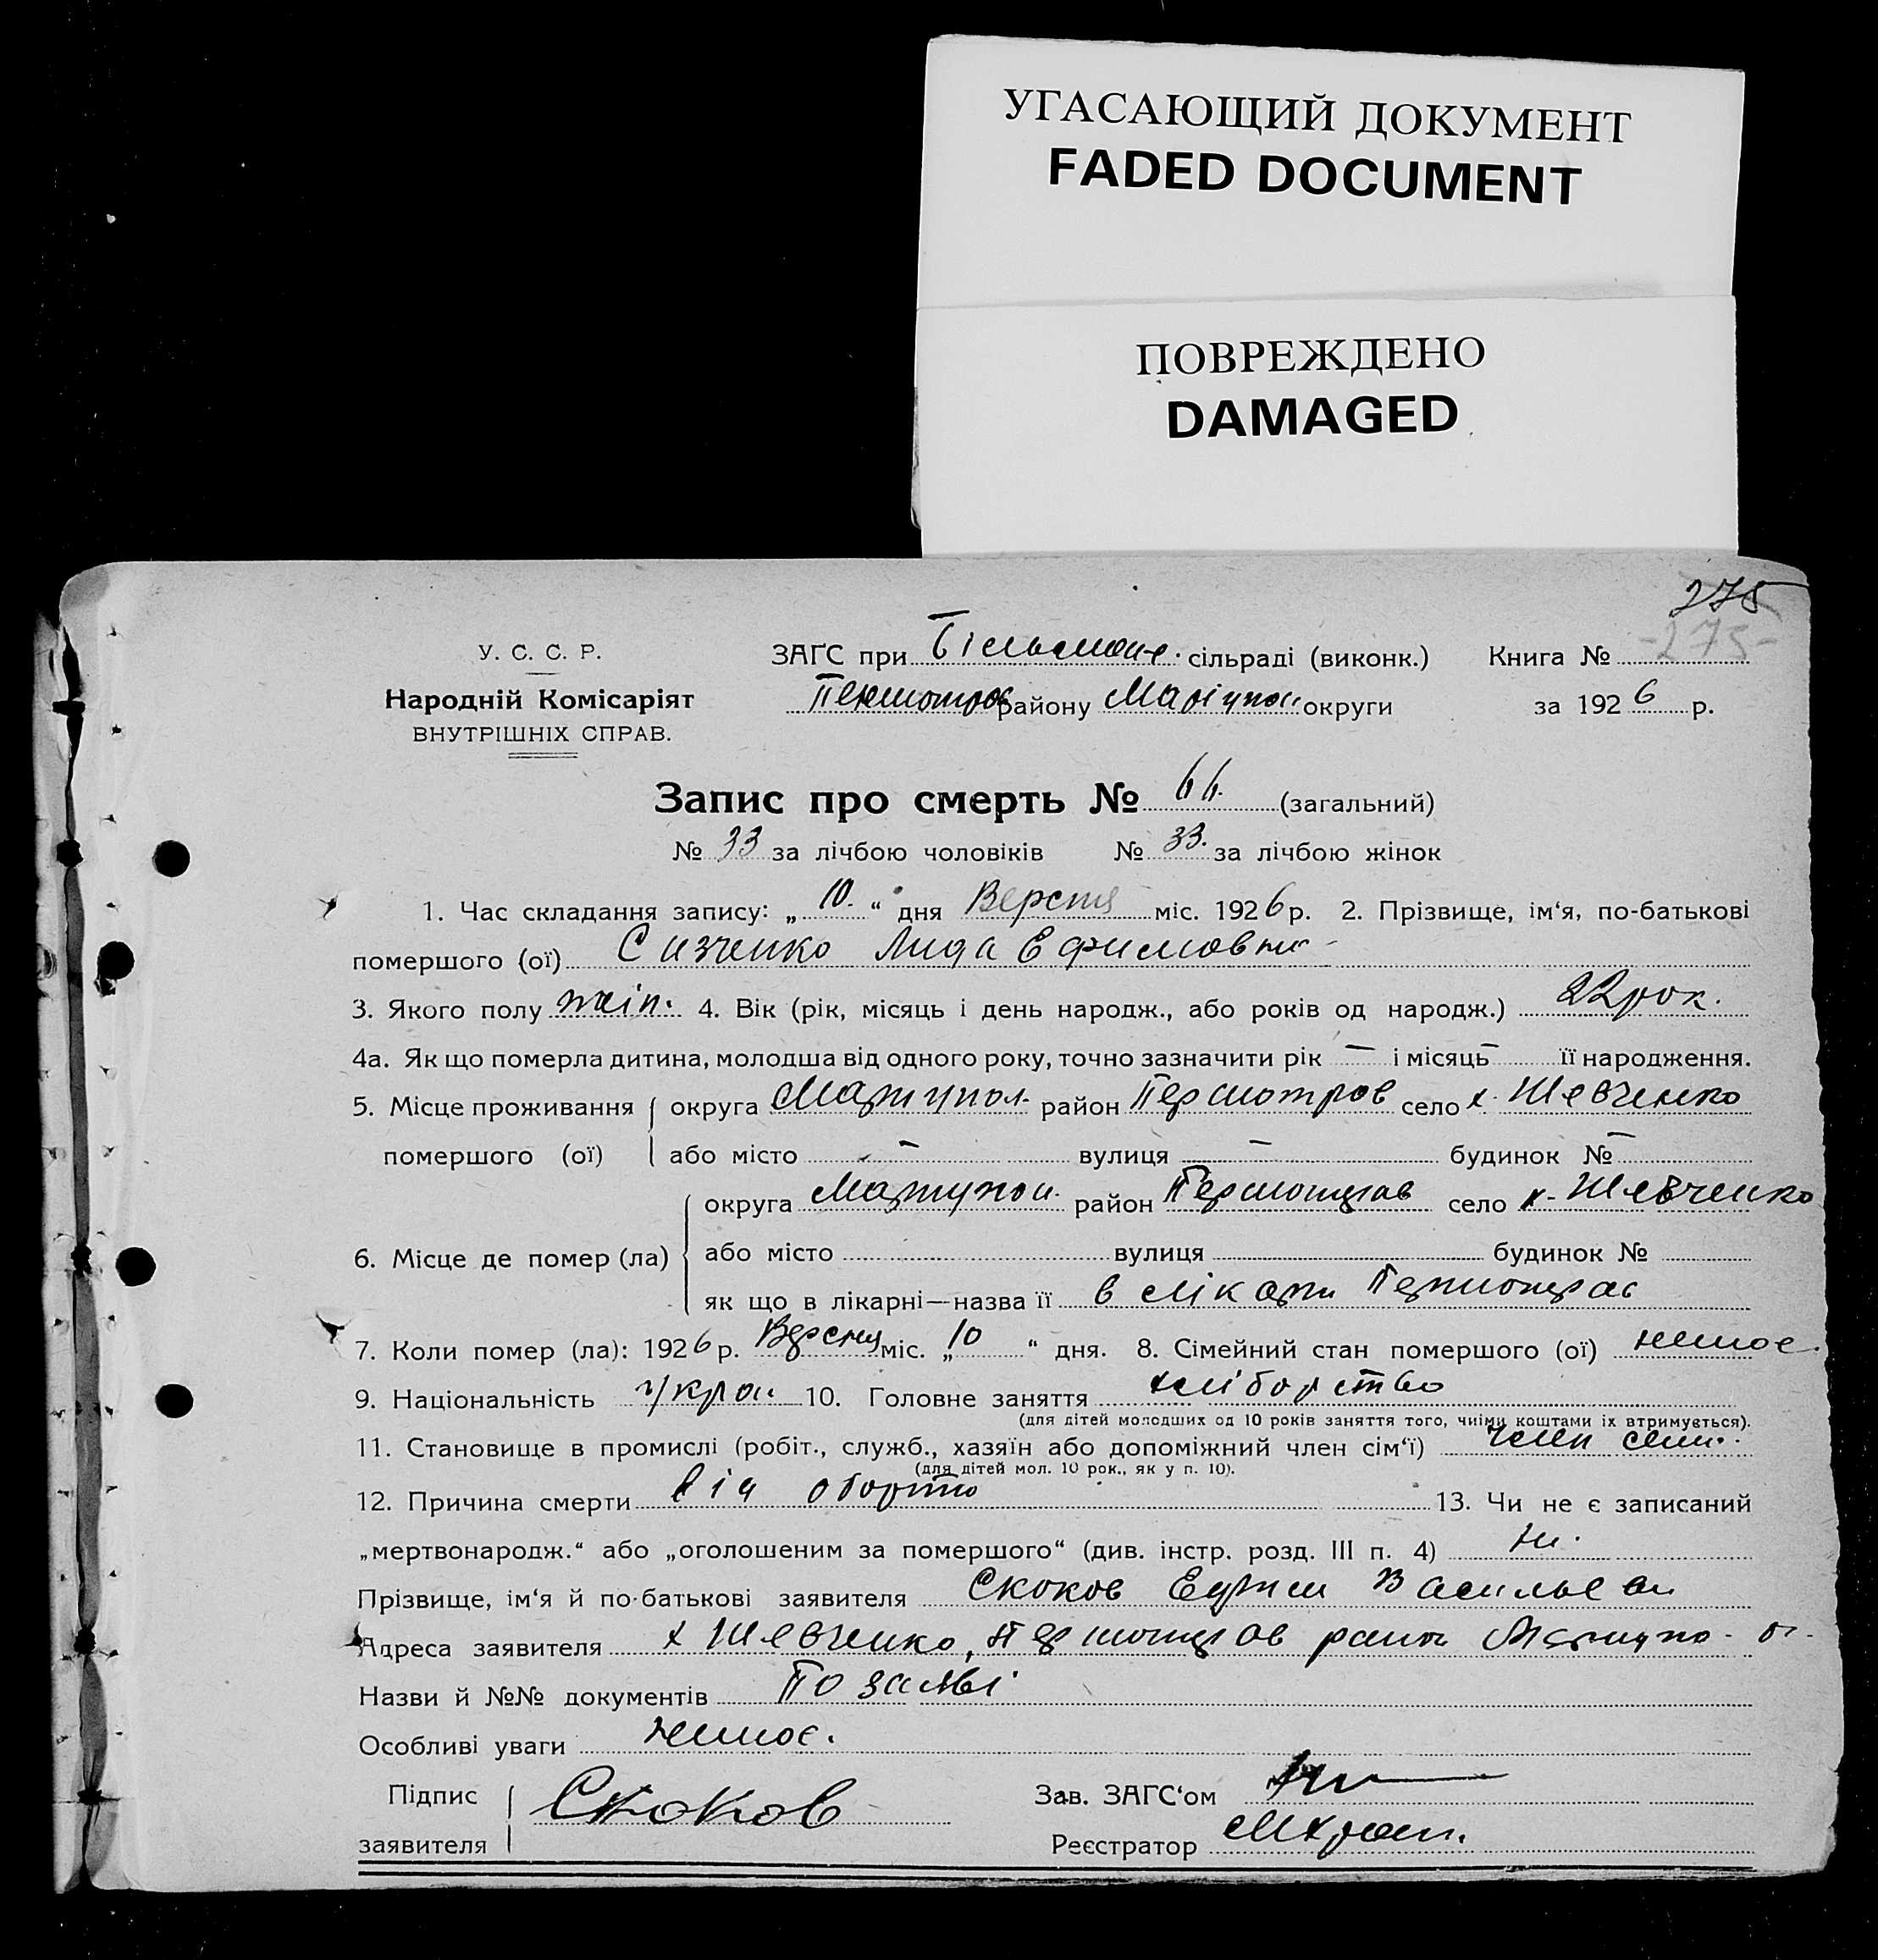 УГАСАЮЩИЙ ДОКУМЕНТ
FADED DOCUMENT
ПОВРЕЖДЕНО
DAMAGED
275
У. С. С. Р.
ЗАГС при сільраді (виконк.) Книга № -275-
Народній Комісаріят
району Маріупол. округи за 1926 р.
ВНУТРІШНІХ СПРАВ.
Запис про смерть № 66. (загальний)
№ 33 за лічбою чоловіків № 33. за лічбою жінок
1. Час складання запису: „10.“ дня Версня міс. 1926 р. 2. Прізвище, ім‘я, по-батькові
помершого (ої) Лида Ефимовна
3. Якого полу жін. 4. Вік (рік, місяць і день народж., або років од народж.) 22 рок.
4а. Як що померла дитина, молодша від одного року, точно зазначити рік — і місяць — її народження.
5. Місце проживання округа Маріупол. район Першотров село х. Шевченко
помершого (ої) або місто — вулиця — будинок № —
округа Маріупол. район село х. Шевченко
6. Місце де помер (ла) або місто вулиця будинок №
як що в лікарні—назва її в лікарні
7. Коли помер (ла): 1926 р. Версня міс. „10“ дня. 8. Сімейний стан помершого (ої) немає.
9. Національність Укра. 10. Головне заняття хліборство
(для дітей молодших од 10 років заняття того, чиїми коштами їх втримується).
11. Становище в промислі (робіт., служб., хазяїн або допоміжний член сім‘ї) член сем.
(для дітей мол. 10 рок., як у п. 10).
12. Причина смерти від аборта 13. Чи не є записаний
„мертвонародж.“ або „оголошеним за помершого“ (див. інстр. розд. III п. 4) ні.
Прізвище, ім‘я й по-батькові заявителя Скоков Ефрим
Адреса заявителя х Шевченко,
Назви й №№ документів По заяві
Особливі уваги немає.
Підпис Скоков Зав. ЗАГС‘ом
заявителя Реєстратор